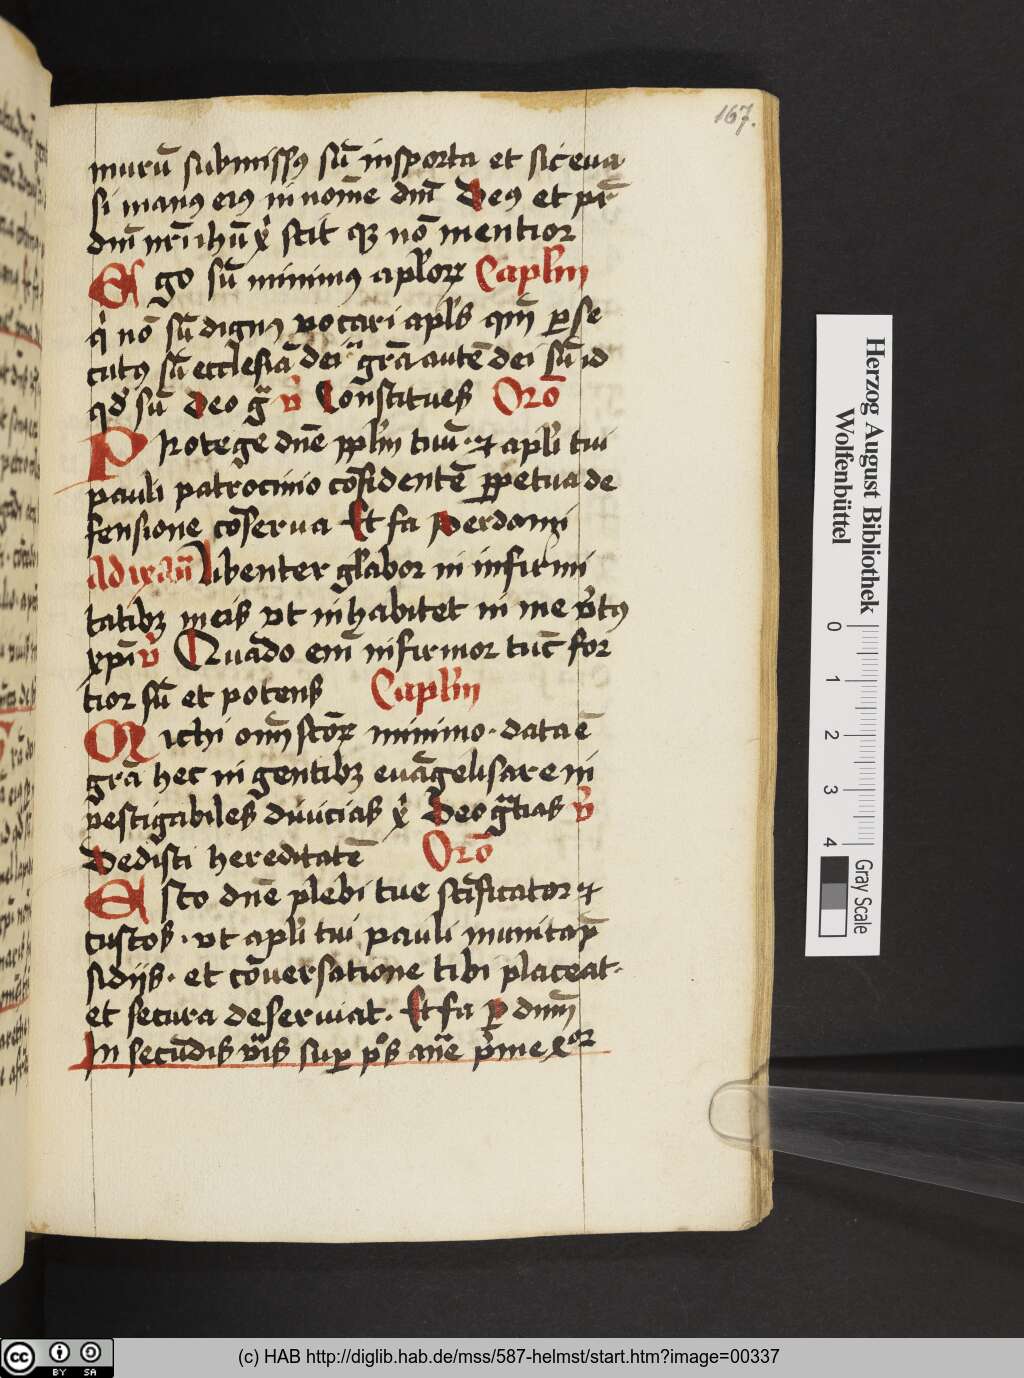 167.
murū submissꝫ sū in sporta et sic eua
si manꝫ eiꝫ in nomīe dm̄i Deꝫ et pr̄
dn̄i nr̄i ihū xp̄i scit qꝫ nō mentior
Ego sū minimꝫ aplorꝝ Caplm̄
qͥ nō sū dignꝫ vocari apls̄ qm̄ ꝑse
cutꝫ sū ecclesiā dei gr̄a autē dei sū id
qd̄ sū Deo gͣ v̄ Constitues Orō
Protege dn̄e pplm̄ tuū ⁊ apl̄i tui
pauli patrocinio cōfidentē ꝑpetua de
fensione cōserua Et fa Perdomi
Ad ix an̄ Libenter gl̄abor in infirmi
tatibꝫ meis vt inhabitet in me v̄tꝫ
xp̄i v̄ Quādo em̄ infirmor tūc for
tior sū et potens Caplm̄
Michi om̄ scōrꝝ minimo · data ē
gr̄a hec in gentibꝫ euāgelisare in
vestigabiles diuicias xp̄i Deo gͣtias v̄
Dedisti hereditatē Orō
Esto dn̄e plebi tue sc̄ificator ⁊
custos · vt apl̄i tui pauli munita p̄
sidijs · et cōuersatione tibi placeat ·
et secura deseruiat · Et fa ꝑ dnm̄
In secūdis v̄ꝑis suꝑ p̄s an̄e
Herzog August Bibliothek
Wolfenbüttel
0 1 2 3 4
Gray Scale
cc BY SA
(c) HAB http://diglib.hab.de/mss/587-helmst/start.htm?image=00337